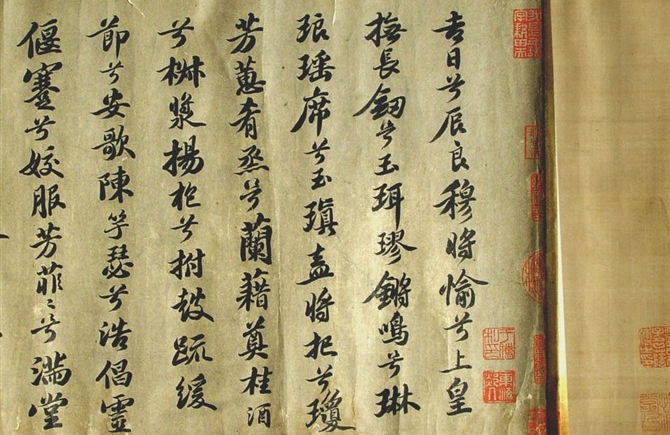 吉日兮辰良穆將愉兮上皇
撫長釼兮玉珥璆鏘鳴兮琳
琅瑤席兮玉瑱盍將把兮瓊
芳蕙肴烝兮蘭藉奠桂酒
兮椒漿揚枹兮拊鼓疏緩
節兮安歌陳竽瑟兮浩倡靈
偃蹇兮姣服芳菲〻兮滿堂